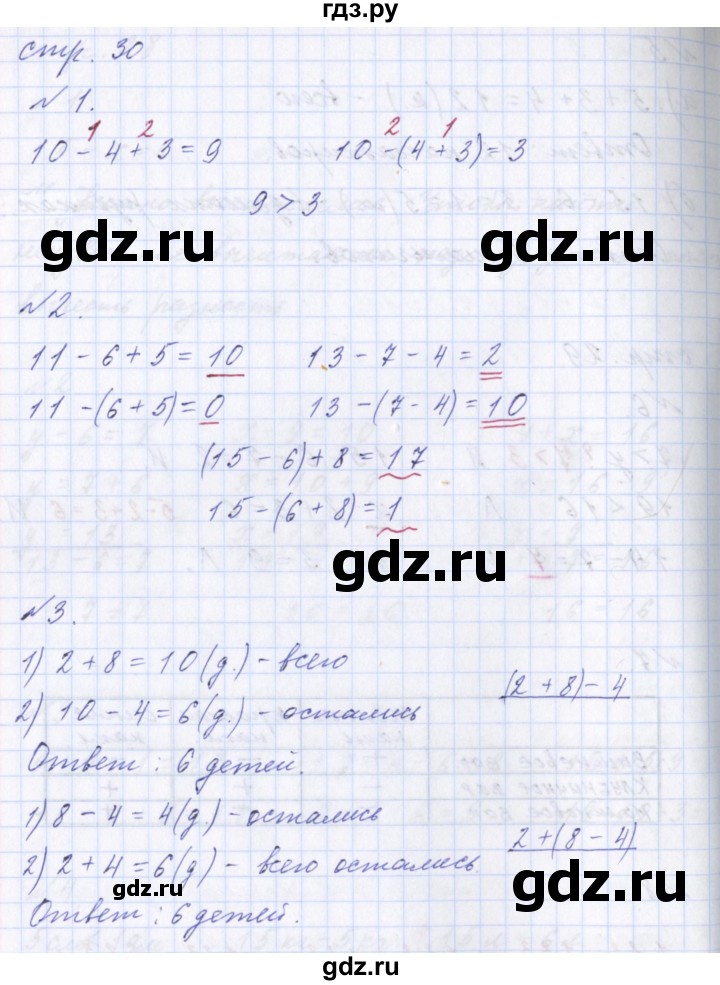 гдз.ру
стр. 30
№ 1.
1 2 2 1
10 - 4 + 3 = 9 10 - (4 + 3) = 3
9 > 3
gdz.ru gdz.ru
№ 2.
11 - 6 + 5 = 10 13 - 7 - 4 = 2
11 - (6 + 5) = 0 13 - (7 - 4) = 10
(15 - 6) + 8 = 17
15 - (6 + 8) = 1
gdz.ru
№ 3.
1) 2 + 8 = 10 (д.) - всего
(2 + 8) - 4
2) 10 - 4 = 6 (д.) - остались
Ответ : 6 детей.
1) 8 - 4 = 4 (д.) - остались
2 + (8 - 4)
2) 2 + 4 = 6 (д) - всего остались.
gdz.ru gdz.ru
Ответ : 6 детей.
gdz.ru